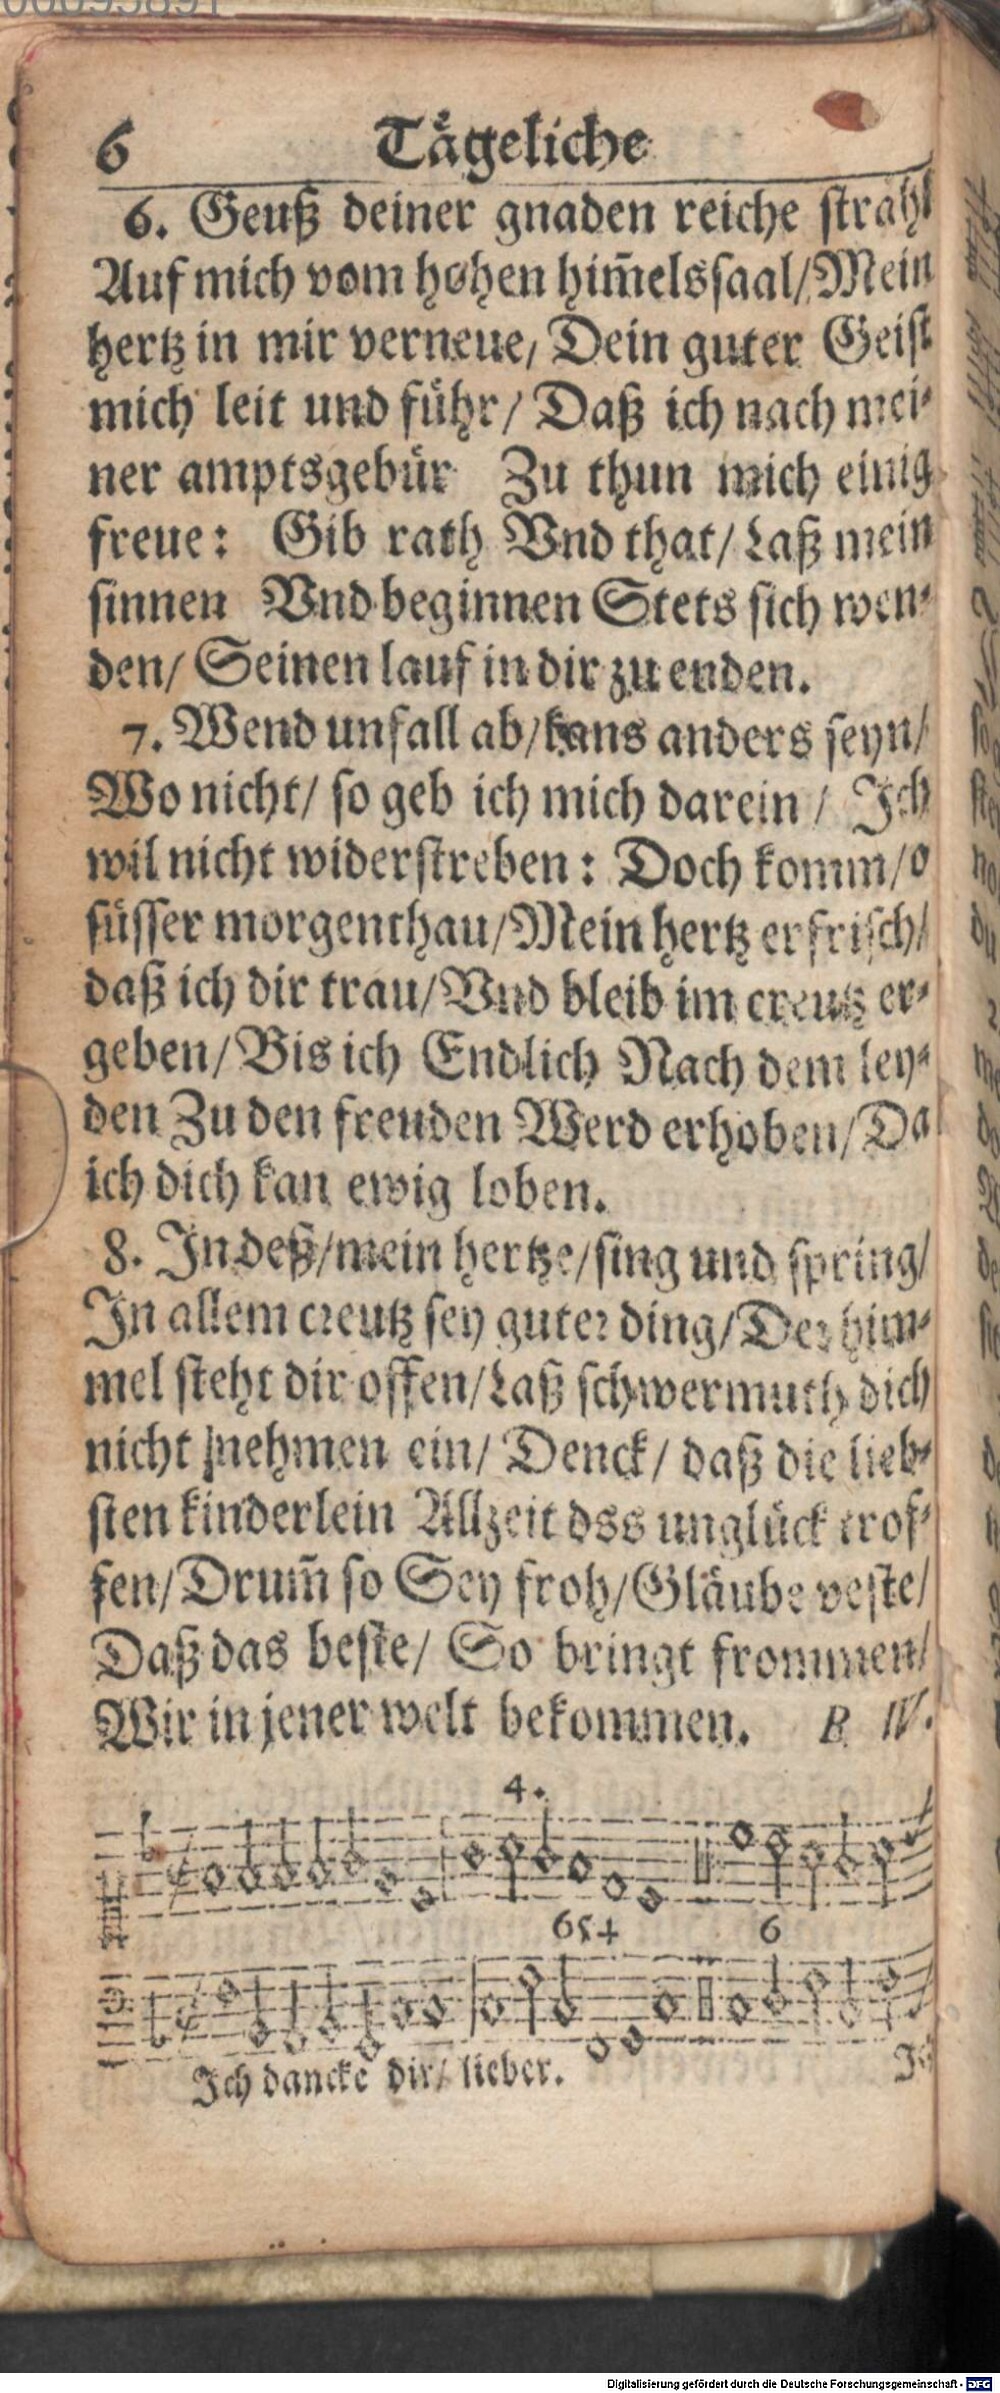 6 Tägeliche
6. Geuß deiner gnaden reiche strahl
Auf mich vom hohen him̄elssaal/Mein
hertz in mir verneue, Dein guter Geist
mich leit und führ/ Daß ich nach mei-
ner amptsgebür Zu thun mich einig
freue: Gib rath Vnd that/ Laß mein
sinnen Vnd beginnen Stets sich wen-
den/ Seinen lauf in dir zu enden.
7. Wend unfall ab/kans anders seyn/
Wo nicht/ so geb ich mich darein/ Ich
wil nicht widerstreben: Doch komm/o
süsser morgenthau/Mein hertz erfrisch/
daß ich dir trau/Vnd bleib im creutz er-
geben/Bis ich Endlich Nach dem ley-
den Zu den freuden Werd erhoben/Da
ich dich kan ewig loben.
8. Indeß/mein hertze/sing und spring/
In allem creutz sey guter ding/Der him-
mel steht dir offen/Laß schwermuth dich
nicht nehmen ein/ Denck/ daß die lieb-
sten kinderlein Allzeit dss unglück trof-
fen/Drum̄ so Sey froh/Gläube veste/
Daß das beste/ So bringt frommen/
Wir in jener welt bekommen. B IV.
4.
6 5 + 6
Ich dancke dir/ lieber.
Digitalisierung gefördert durch die Deutsche Forschungsgemeinschaft - DFG